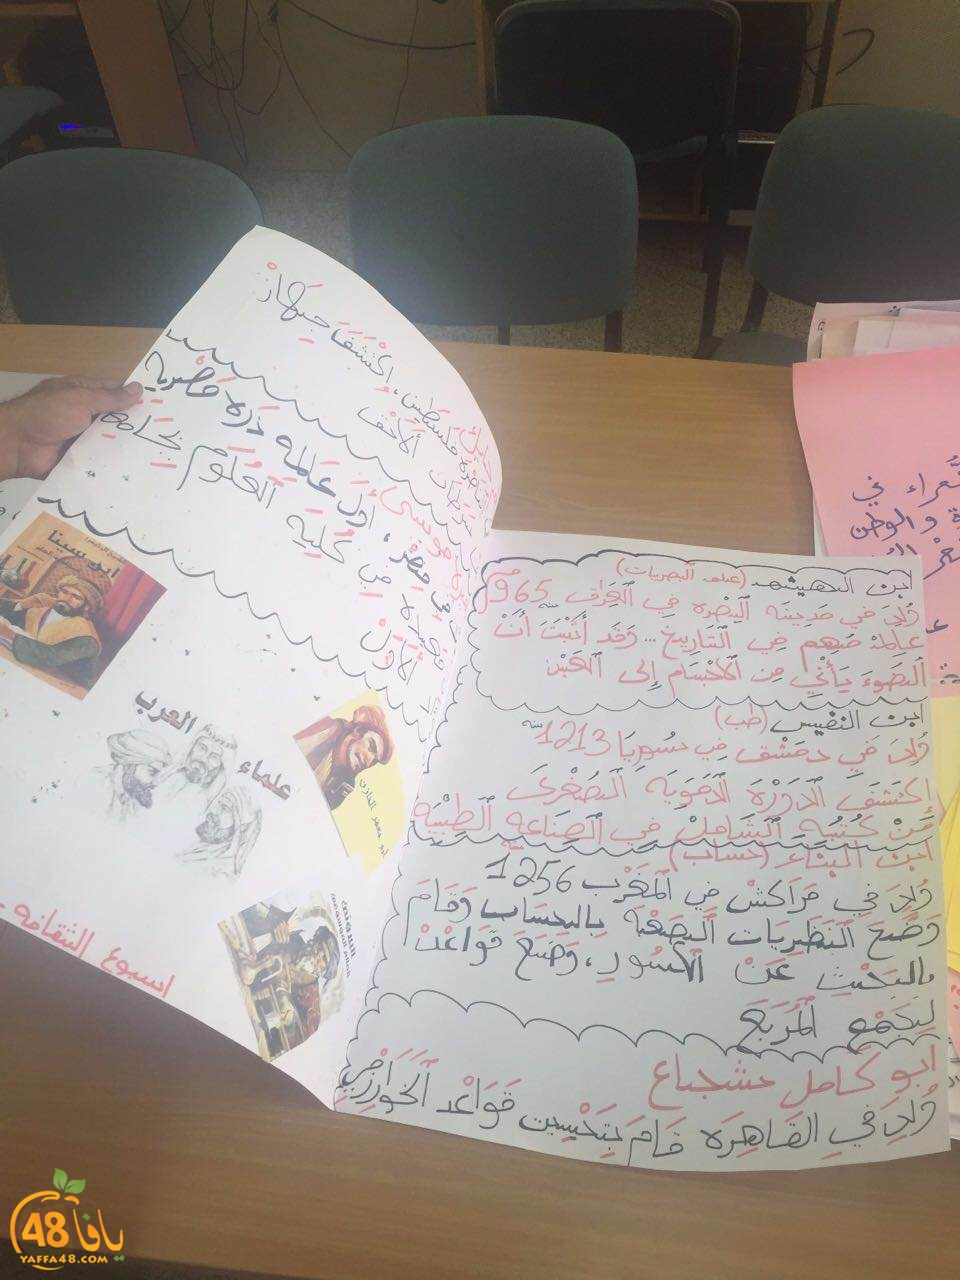 ابن الهيثم (علم البصريات)
وُلِدَ في مدينة البصرة في العِراق سنة 965م
عالمْ مُهم في التاريخ... وقد أثْبَتَ أنْ
الضوء يأتي مِن الأجْسام إلى العَيْن
ابن النفيس (طب)
وُلِدَ في دمشْق في سُوريا سنة 1213
إكتشَف الدَوْرَة الدَمَوِيَة الصُغْرى
مِنْ كُتُبِه الشامِلْ في الصِناعة الطِبيَة
ابن البناء (حساب)
وُلِدَ في مَراكش في المغْرِب 1256
وَضَعَ النَظَرِيات الصَعْبة بالحِساب وَقامَ
بالبَحْثِ عَنْ الكُسُور، وَضَعَ قَواعْد
لِجَمْع المُرَبَع
ابو كامل شجاع
وُلِدَ في القاهِرَة قامَ بتَحْسين قَواعْد الخَوارزْمي
إكْتشَفَ جِهازْ
فلسطين،
موسى، اول عالمة ذرة مصرية
مِصْر،
مِن كُلية العُلوم بجامعة
الأولى
ابن سينا
علماء
العرب
اسبوع الثقافة
شُعراء في
والوطن
يافا 48
YAFFA48.COM